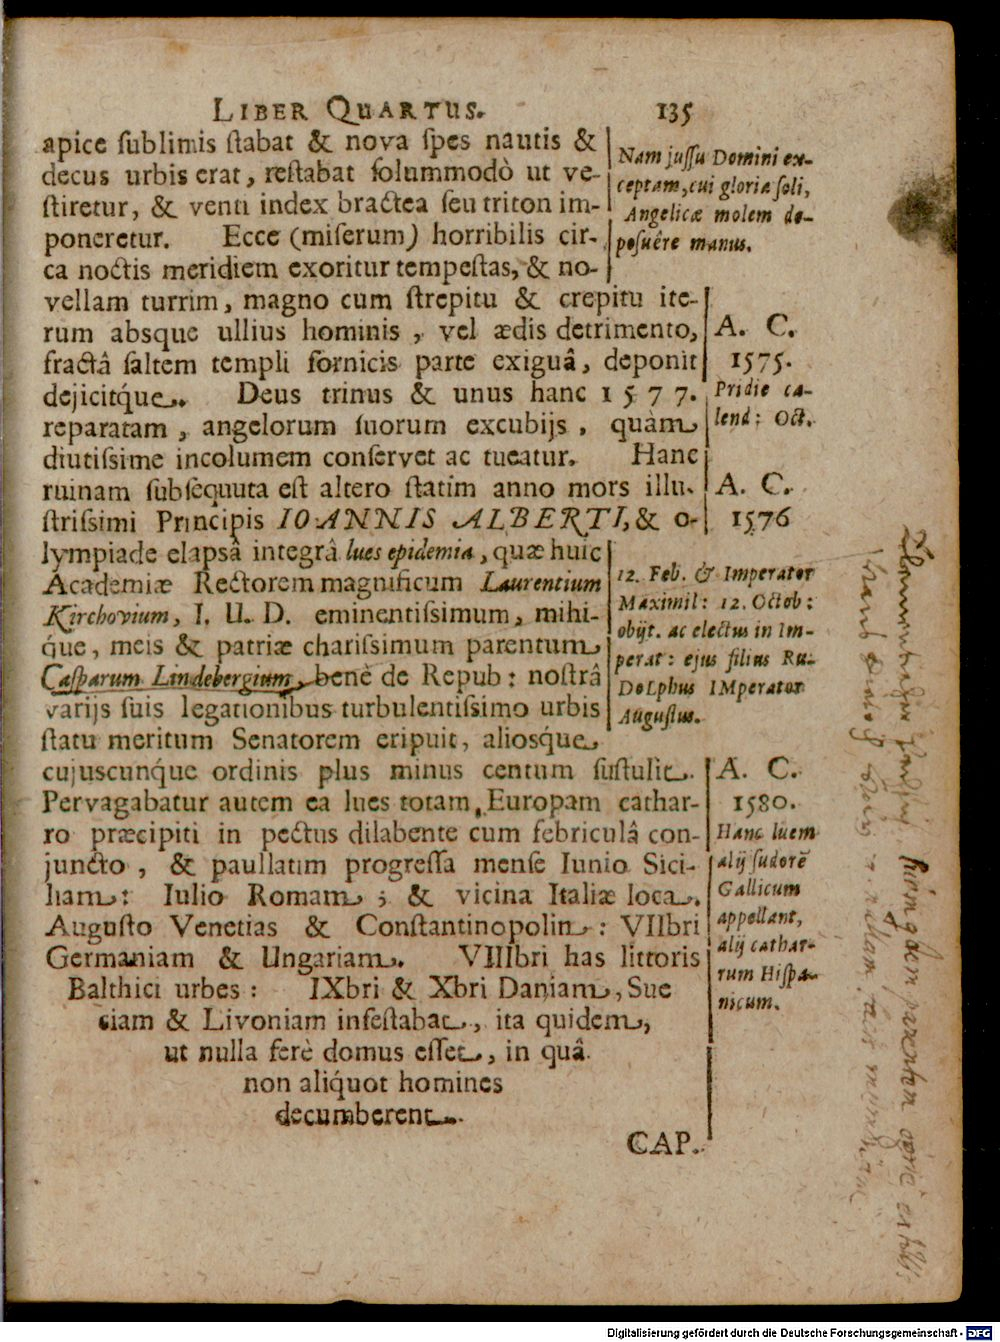 LIBER QUARTUS. 135
apice ſublimis ſtabat & nova ſpes nautis &
decus urbis erat, reſtabat ſolummodò ut ve-
ſtiretur, & venti index bractea ſeu triton im-
poneretur. Ecce (miſerum) horribilis cir-
ca noctis meridiem exoritur tempeſtas, & no-
vellam turrim, magno cum ſtrepitu & crepitu ite-
rum absque ullius hominis, vel ædis detrimento,
fractâ ſaltem templi fornicis parte exiguâ, deponit
dejicitq́ue. Deus trinus & unus hanc 1577.
reparatam, angelorum ſuorum excubijs, quàm
diutiſsime incolumem conſervet ac tueatur. Hanc
ruinam ſubſequuta eſt altero ſtatim anno mors illu-
ſtriſsimi Principis IOANNIS ALBERTI, & o-
lympiade elapsâ integrâ lues epidemia, quæ huic
Academiæ Rectorem magnificum Laurentium
Kirchovium, I. U. D. eminentiſsimum, mihi-
q́ue, meis & patriæ chariſsimum parentum
Caſparum Lindebergium, benè de Repub: noſtrâ
varijs ſuis legationibus turbulentiſsimo urbis
ſtatu meritum Senatorem eripuit, aliosq́ue
cujuscunq́ue ordinis plus minus centum ſuſtulit.
Pervagabatur autem ea lues totam Europam cathar-
ro præcipiti in pectus dilabente cum febriculâ con-
juncto, & paullatim progreſſa menſe Iunio Sici-
liam: Iulio Romam; & vicina Italiæ loca.
Auguſto Venetias & Conſtantinopolin: VIIbri
Germaniam & Ungariam. VIIIbri has littoris
Balthici urbes: IXbri & Xbri Daniam, Sue
ciam & Livoniam infeſtabat, ita quidem,
ut nulla ferè domus eſſet, in quâ
non aliq́uot homines
decumberent.
CAP.
Nam juſſu Domini ex-
ceptam, cui gloria ſoli,
Angelicæ molem de-
poſuêre manus.
A. C.
1575.
Pridie ca-
lend: Oct.
A. C.
1576
12. Feb. & Imperator
Maximil: 12. Octob:
obijt. ac electus in Im-
perat: ejus filius Ru-
DoLphus IMperator
Auguſtus.
A. C.
1580.
Hanc luem
alij ſudorē
Gallicum
appellant,
alij cathar-
rum Hiſpa-
nicum.
Digitalisierung gefördert durch die Deutsche Forschungsgemeinschaft - DFG